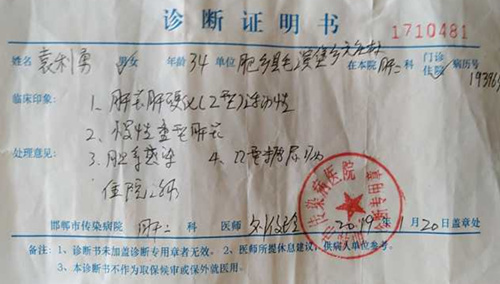 诊断证明书
1710481
姓名 袁利勇 男女 年龄 34 单位 肥乡县毛演堡乡 在本院 肝二 科 门诊 住院 病历号 193
临床印象: 1. 肝炎肝硬化(乙型)活动性
2. 慢性重型肝炎
处理意见: 3. 胆系感染 4. 2型糖尿病
住院
邯郸市传染病院 肝二 科 医师 2019年1月20日盖章处
传染病医院
专用章
备注:1、诊断书未加盖诊断专用章者无效。2、医师所提休息建议,供病人单位参考。
3、本诊断书不作为取保候审或保外就医用。